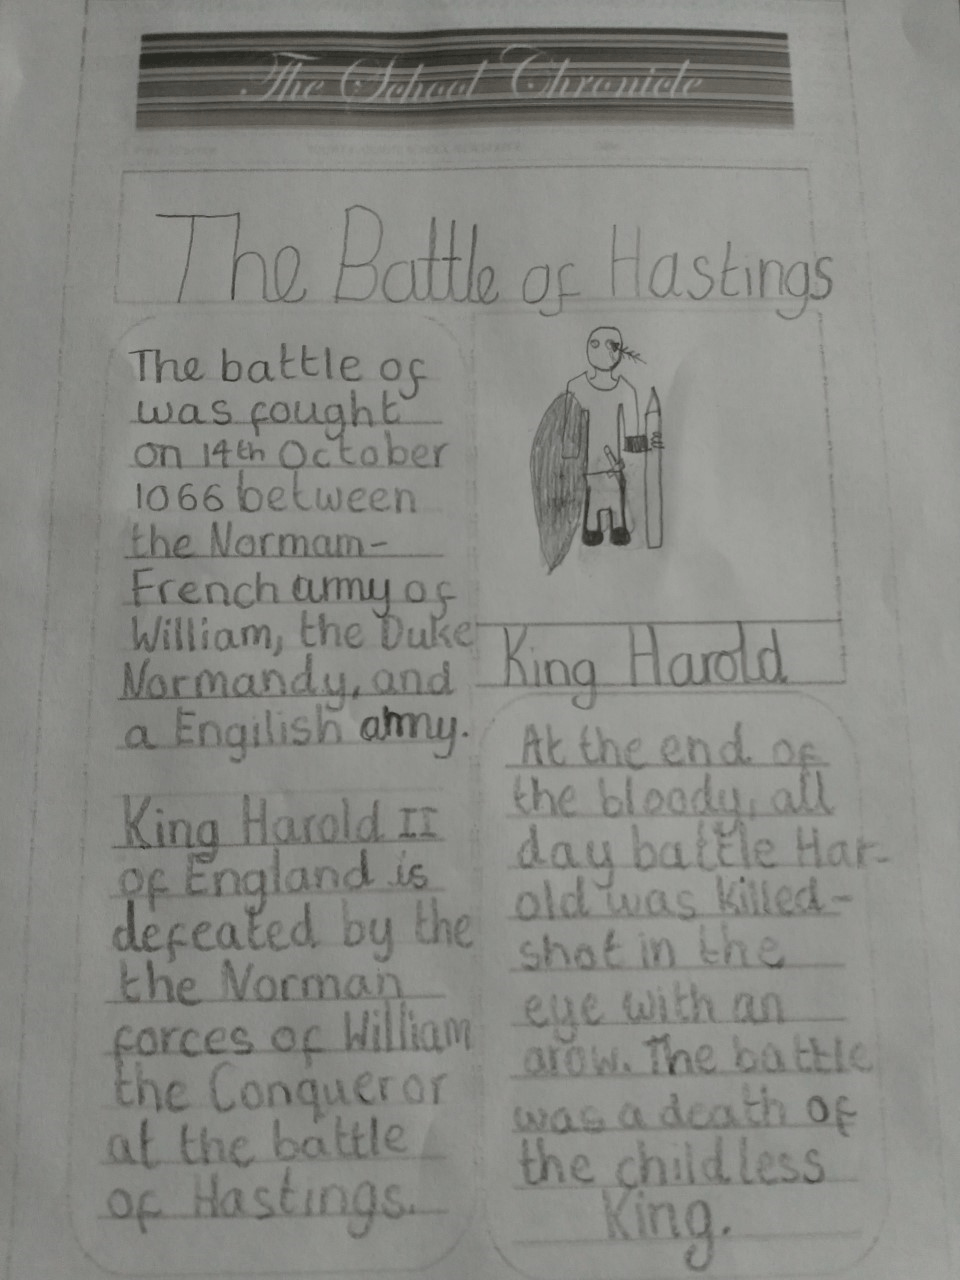 The School Chronicle
The Battle of Hastings
The battle of
was fought
on 14th October
1066 between
the Normam-
French army of
William, the Duke
Normandy, and
a Engilish army.
King Harold II
of England is
defeated by the
the Norman
forces of William
the Conqueror
at the battle
of Hastings.
King Harold
At the end of
the bloody, all
day battle Har-
old was killed-
shot in the
eye with an
arow. The battle
was a death of
the childless
King.